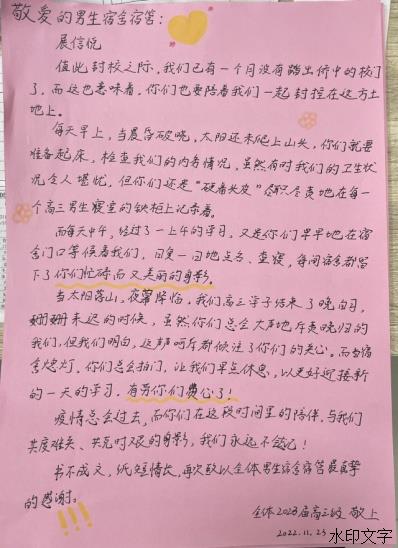 敬爱的男生宿舍宿管：
展信悦
值此封校之际，我们已有一个月没有踏出侨中的校门
了，而这也意味着，你们也要陪着我们一起封控在这方土
地上。
每天早上，当晨昏破晓，太阳还未爬上山头，你们就要
准备起床，检查我们的内务情况，虽然有时我们的卫生状
况令人堪忧，但你们还是“硬着头皮”尽职尽责地在每一
个高三男生寝室的铁柜上记录着。
而每天中午，经过了一上午的学习，又是你们早早地在宿
舍门口等候着我们，日复一日地点名、查寝，每间宿舍都留
下了你们忙碌而又美丽的身影。
当太阳落山，夜幕降临，我们高三学子结束了晚自习，
姗姗来迟的时候，虽然你们总会大声地斥责晚归的
我们，但我们明白，这声呵斥都倾注了你们的关心。而当宿
舍熄灯，你们总会拍门，让我们早点休息，以更好迎接新
的一天的学习，有劳你们费心了！
疫情总会过去，而你们在这段时间里的陪伴，与我们
共度难关、共克时艰的身影，我们永远不会忘！
书不成文，纸短情长，再次致以全体男生宿舍宿管最真挚
的感谢。
全体2023届高三级 敬上
2022.11.23
!!!
水印文字